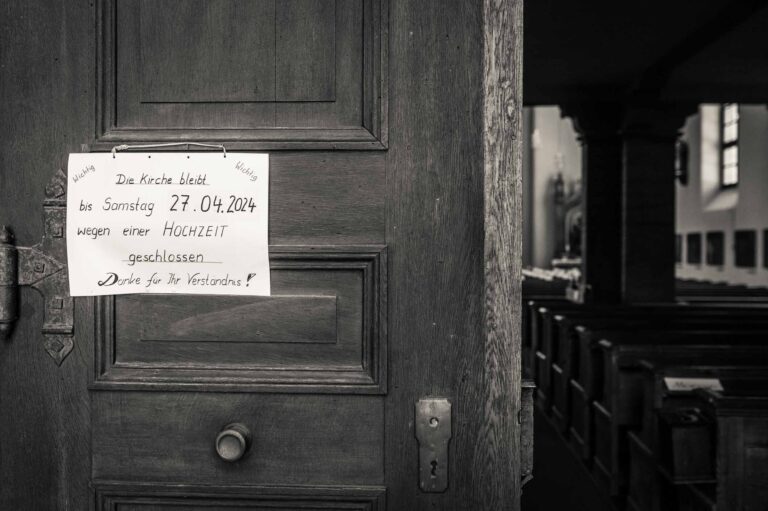 Wichtig Wichtig
Die Kirche bleibt
bis Samstag 27.04.2024
wegen einer HOCHZEIT
geschlossen
Danke für Ihr Verständnis!